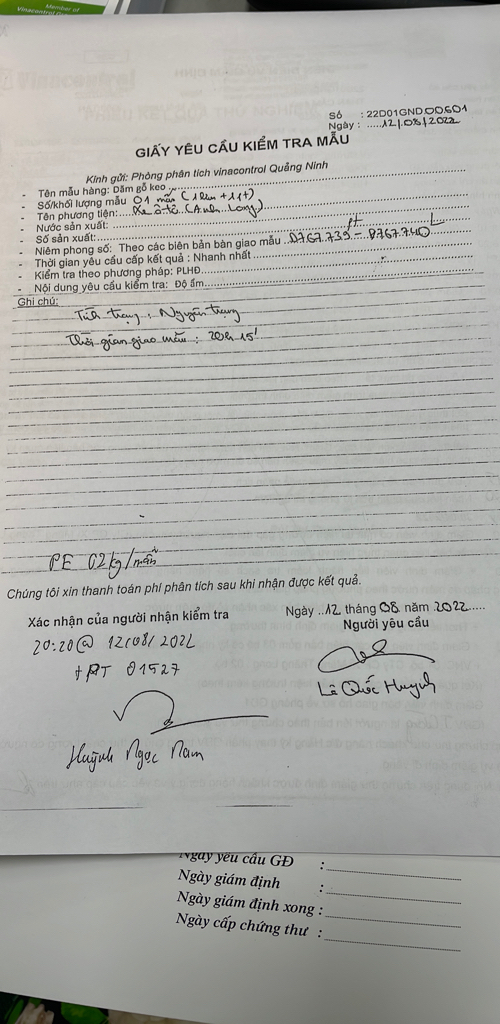 Member of
Số : 22D01GND.00601
Ngày : .....12/08/2022
GIẤY YÊU CẦU KIỂM TRA MẪU
Kính gửi: Phòng phân tích vinacontrol Quảng Ninh
- Tên mẫu hàng: Dăm gỗ keo
- Số/khối lượng mẫu 01 mẫu (1lần +1lt)
- Tên phương tiện:.... Xe ô tô (Anh Long)
- Nước sản xuất:
- Số sản xuất:
- Niêm phong số: Theo các biên bản bàn giao mẫu ..0767.739 - 0767.740
- Thời gian yêu cầu cấp kết quả : Nhanh nhất
- Kiểm tra theo phương pháp: PLHĐ
- Nội dung yêu cầu kiểm tra: Độ ẩm
Ghi chú:
Tình trạng: Nguyên trạng
Thời gian giao mẫu: 20h 15'
PE 02kg/mẫu
Chúng tôi xin thanh toán phí phân tích sau khi nhận được kết quả.
Xác nhận của người nhận kiểm tra
20:20@ 12/08/2022
+PT 01527
Huỳnh Ngọc Nam
Ngày ..12 tháng 08 năm 2022.....
Người yêu cầu
Lê Quốc Huynh
Ngày yêu cầu GĐ :
Ngày giám định :
Ngày giám định xong :
Ngày cấp chứng thư :